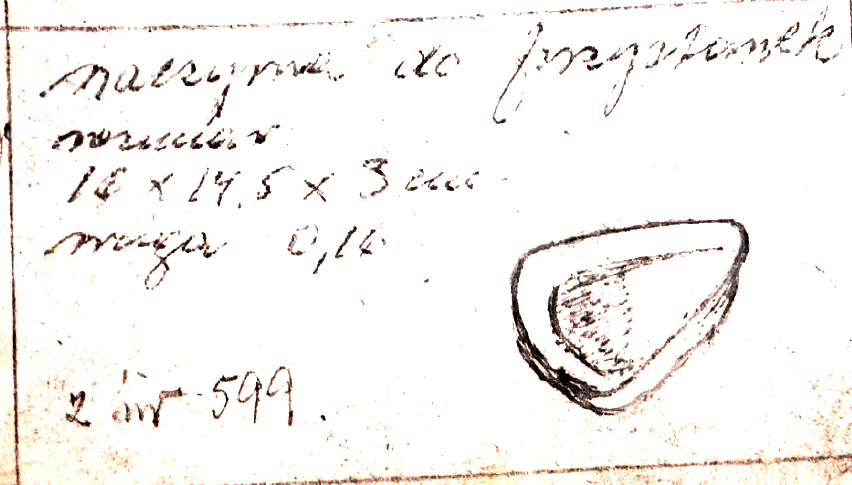 naczynie do przystawek
rozmiar
18 x 14,5 x 3 cm
waga 0,16
599.